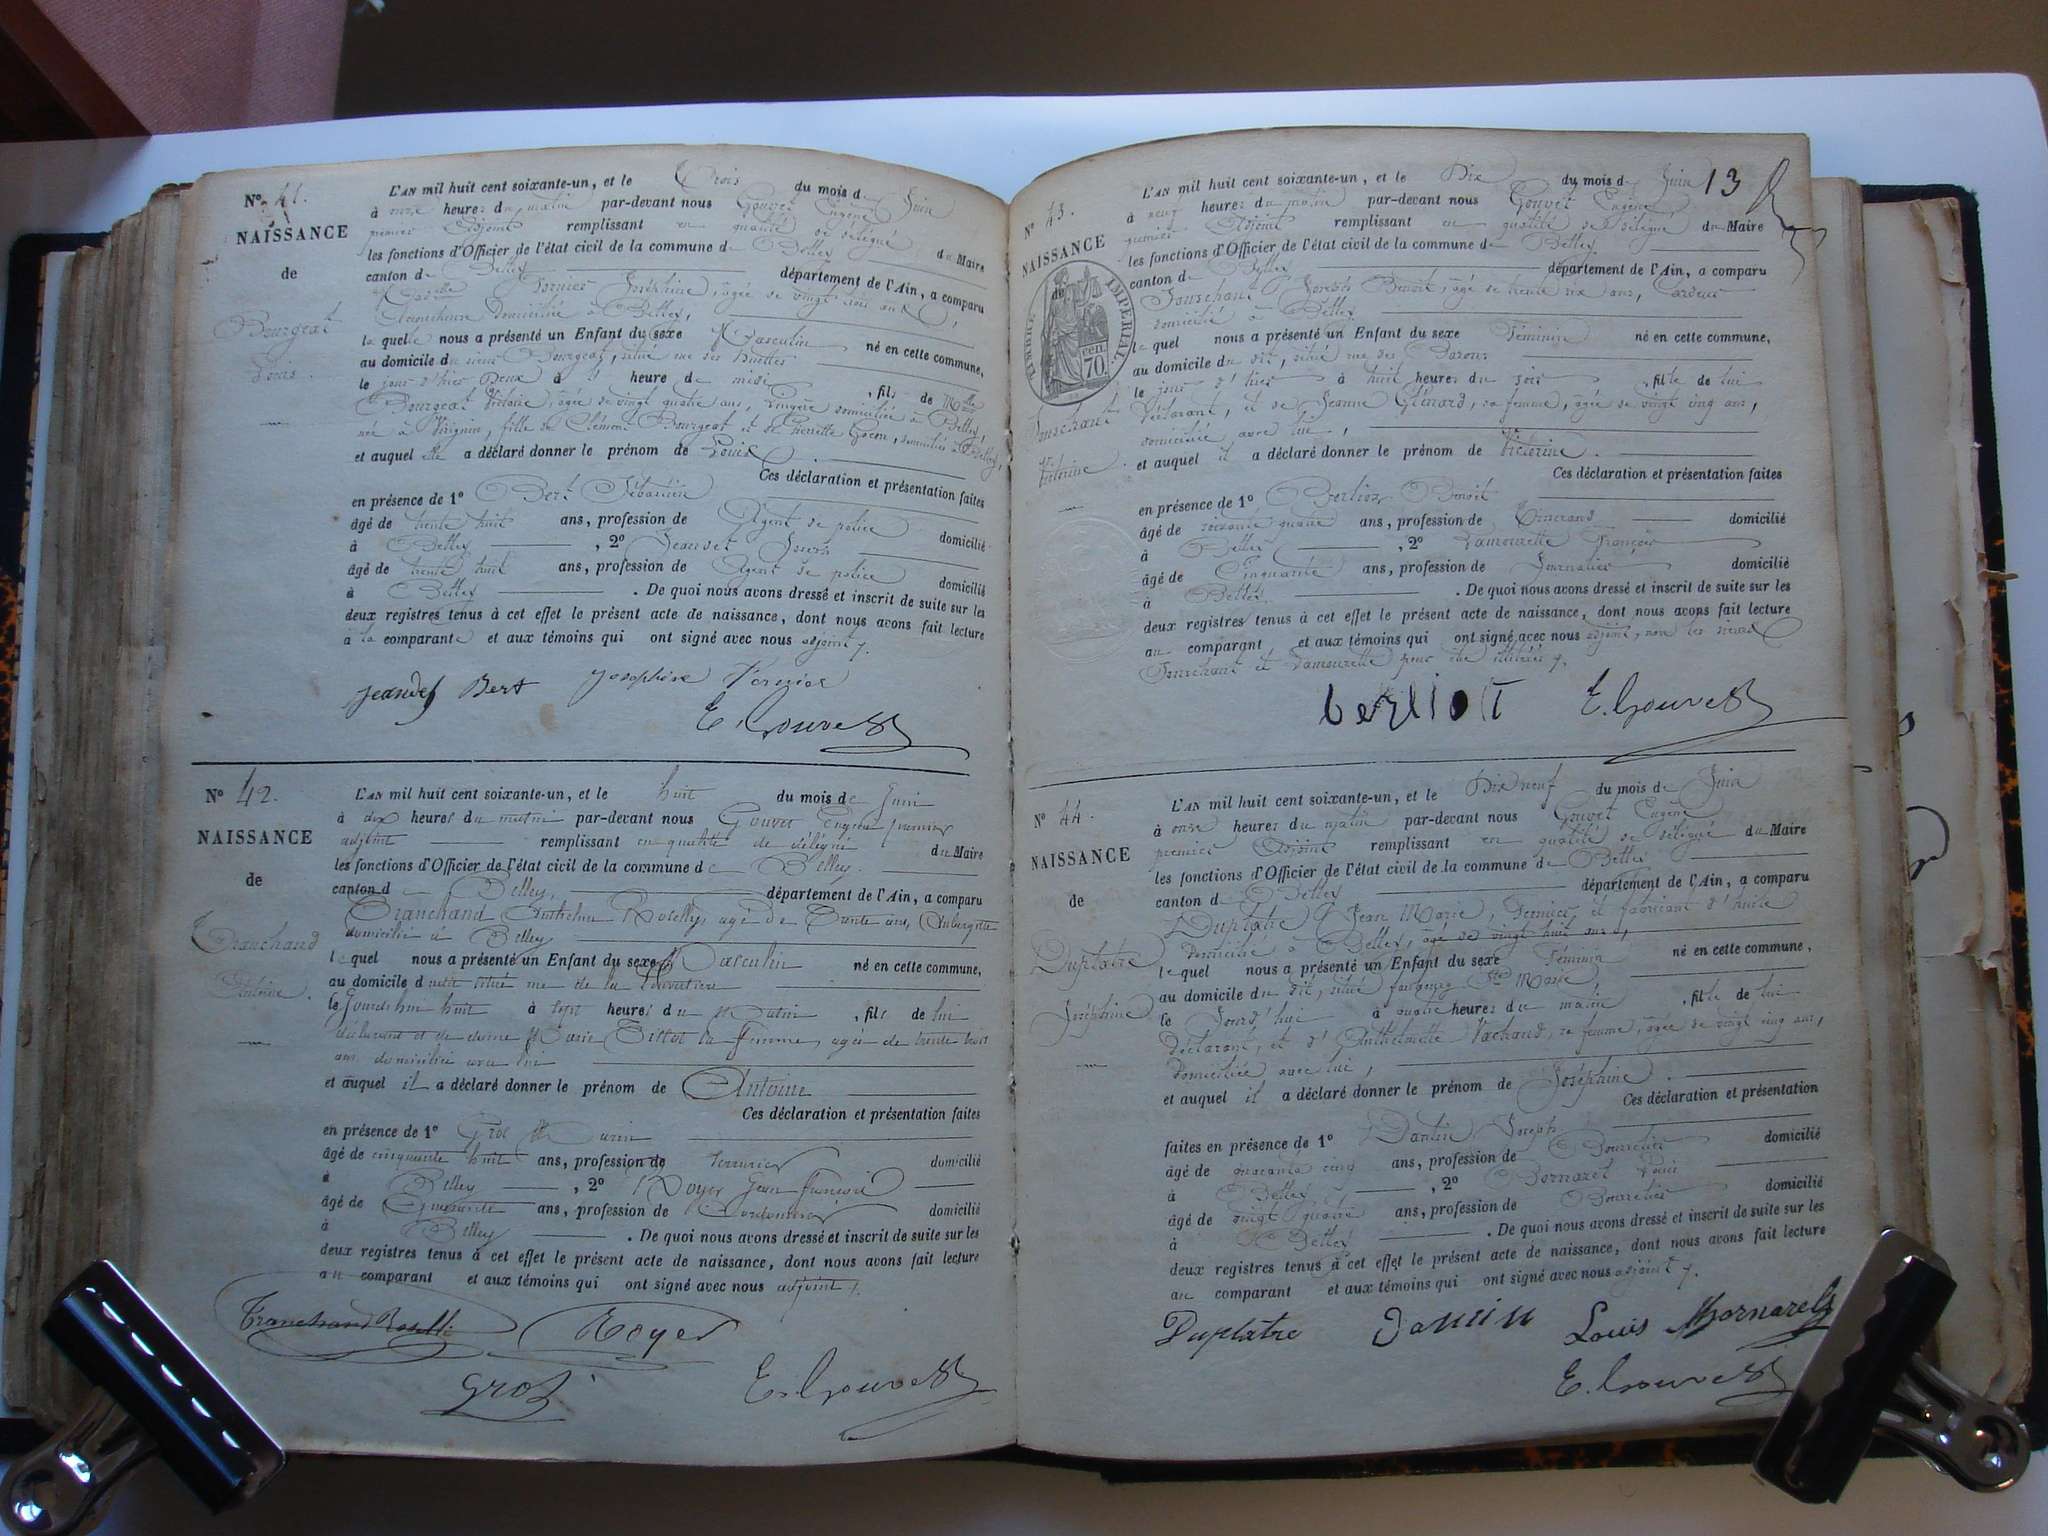 N° 41.
NAISSANCE
de
Bourgeat
Louis.
L'AN mil huit cent soixante-un, et le Trois du mois de Juin
à onze heures du matin par-devant nous Gouvet Eugène
premier adjoint remplissant en qualité de délégué du Maire
les fonctions d'Officier de l'état civil de la commune de Belley
canton de Belley département de l'Ain, a comparu
Joséphine, âgée de vingt trois ans,
domiciliée à Belley,
laquelle nous a présenté un Enfant du sexe Masculin né en cette commune,
au domicile du sieur Bourgeat, situé rue des
le jour d'hier Deux à heure de midi, fils de Mlle
Bourgeat Victoire, âgée de vingt quatre ans, Lingère domiciliée à Belley,
née à Virignin, fille de Clément Bourgeat et de Pierrette domiciliés à Belley,
et auquel elle a déclaré donner le prénom de Louis.
Ces déclaration et présentation faites
en présence de 1° Bert Sébastien
âgé de trente huit ans, profession de Agent de police domicilié
à Belley, 2° Jeandet Joseph
âgé de trente huit ans, profession de Agent de police domicilié
à Belley. De quoi nous avons dressé et inscrit de suite sur les
deux registres tenus à cet effet le présent acte de naissance, dont nous avons fait lecture
à la comparante et aux témoins qui ont signé avec nous adjoint.
Jeandet Bert Josephine
E. Gouvet
N° 42.
NAISSANCE
de
Tranchand
Antoine.
L'AN mil huit cent soixante-un, et le huit du mois de Juin
à dix heures du matin par-devant nous Gouvet Eugène premier
adjoint remplissant en qualité de délégué du Maire
les fonctions d'Officier de l'état civil de la commune de Belley.
canton de Belley, département de l'Ain, a comparu
Tranchand Anthelme Roselly, agé de Trente ans, Aubergiste
domicilié à Belley
lequel nous a présenté un Enfant du sexe Masculin né en cette commune,
au domicile du dit situé rue de la
le Jourd'hui huit à sept heures du Matin, fils de lui
déclarant et de dame Marie sa femme, agée de trente trois
ans domiciliée avec lui
et auquel il a déclaré donner le prénom de Antoine
Ces déclaration et présentation faites
en présence de 1° Gros
âgé de cinquante huit ans, profession de serrurier domicilié
à Belley, 2° Royer Jean
âgé de Cinquante ans, profession de Cordonnier domicilié
à Belley. De quoi nous avons dressé et inscrit de suite sur les
deux registres tenus à cet effet le présent acte de naissance, dont nous avons fait lecture
au comparant et aux témoins qui ont signé avec nous adjoint.
Tranchand Roselli Royer
Gros E. Gouvet
13
N° 43.
NAISSANCE
de
TIMBRE IMPERIAL
70 cen
Fouschant
Victorine.
L'AN mil huit cent soixante-un, et le Dix du mois de Juin
à neuf heures du matin par-devant nous Gouvet Eugène
premier adjoint remplissant en qualité de délégué du Maire
les fonctions d'Officier de l'état civil de la commune de Belley
canton de Belley département de l'Ain, a comparu
Joseph Benoit, âgé de trente six ans, Cardeur
domicilié à Belley
lequel nous a présenté un Enfant du sexe Féminin né en cette commune,
au domicile du dit, situé rue des Barons
le jour d'hier à huit heures du soir, fille de lui
déclarant, et de Jeanne Génard, sa femme, âgée de vingt cinq ans,
domiciliée avec lui,
et auquel il a déclaré donner le prénom de Victorine.
Ces déclaration et présentation faites
en présence de 1° Berlioz Benoit
âgé de soixante quatre ans, profession de domicilié
à Belley, 2° Lamourette François
âgé de Cinquante ans, profession de Journalier domicilié
à Belley. De quoi nous avons dressé et inscrit de suite sur les
deux registres tenus à cet effet le présent acte de naissance, dont nous avons fait lecture
au comparant et aux témoins qui ont signé avec nous adjoint, non les sieurs
et Lamourette pour être illitérés.
berliott E. Gouvet
N° 44.
NAISSANCE
de
Duplatre
Joséphine
L'AN mil huit cent soixante-un, et le Dix neuf du mois de Juin
à onze heures du matin par-devant nous Gouvet Eugène
premier adjoint remplissant en qualité de délégué du Maire
les fonctions d'Officier de l'état civil de la commune de Belley
canton de Belley département de l'Ain, a comparu
Duplatre Jean Marie, Fermier et fabricant d'huile
domicilié à Belley, âgé de vingt huit ans,
lequel nous a présenté un Enfant du sexe Féminin né en cette commune,
au domicile du dit, situé faubourg Ste Marie,
le Jourd'hui à quatre heures du matin, fille de lui
déclarant, et d'Anthelmette Vachaud, sa femme, âgée de vingt cinq ans,
domiciliée avec lui,
et auquel il a déclaré donner le prénom de Joséphine.
Ces déclaration et présentation
faites en présence de 1° Dantin Joseph
âgé de quarante cinq ans, profession de Bourrelier domicilié
à Belley, 2° Bornarel Louis
âgé de vingt quatre ans, profession de Bourrelier domicilié
à Belley. De quoi nous avons dressé et inscrit de suite sur les
deux registres tenus à cet effet le présent acte de naissance, dont nous avons fait lecture
au comparant et aux témoins qui ont signé avec nous adjoint.
Duplâtre Dantin Louis Bornarel
E. Gouvet